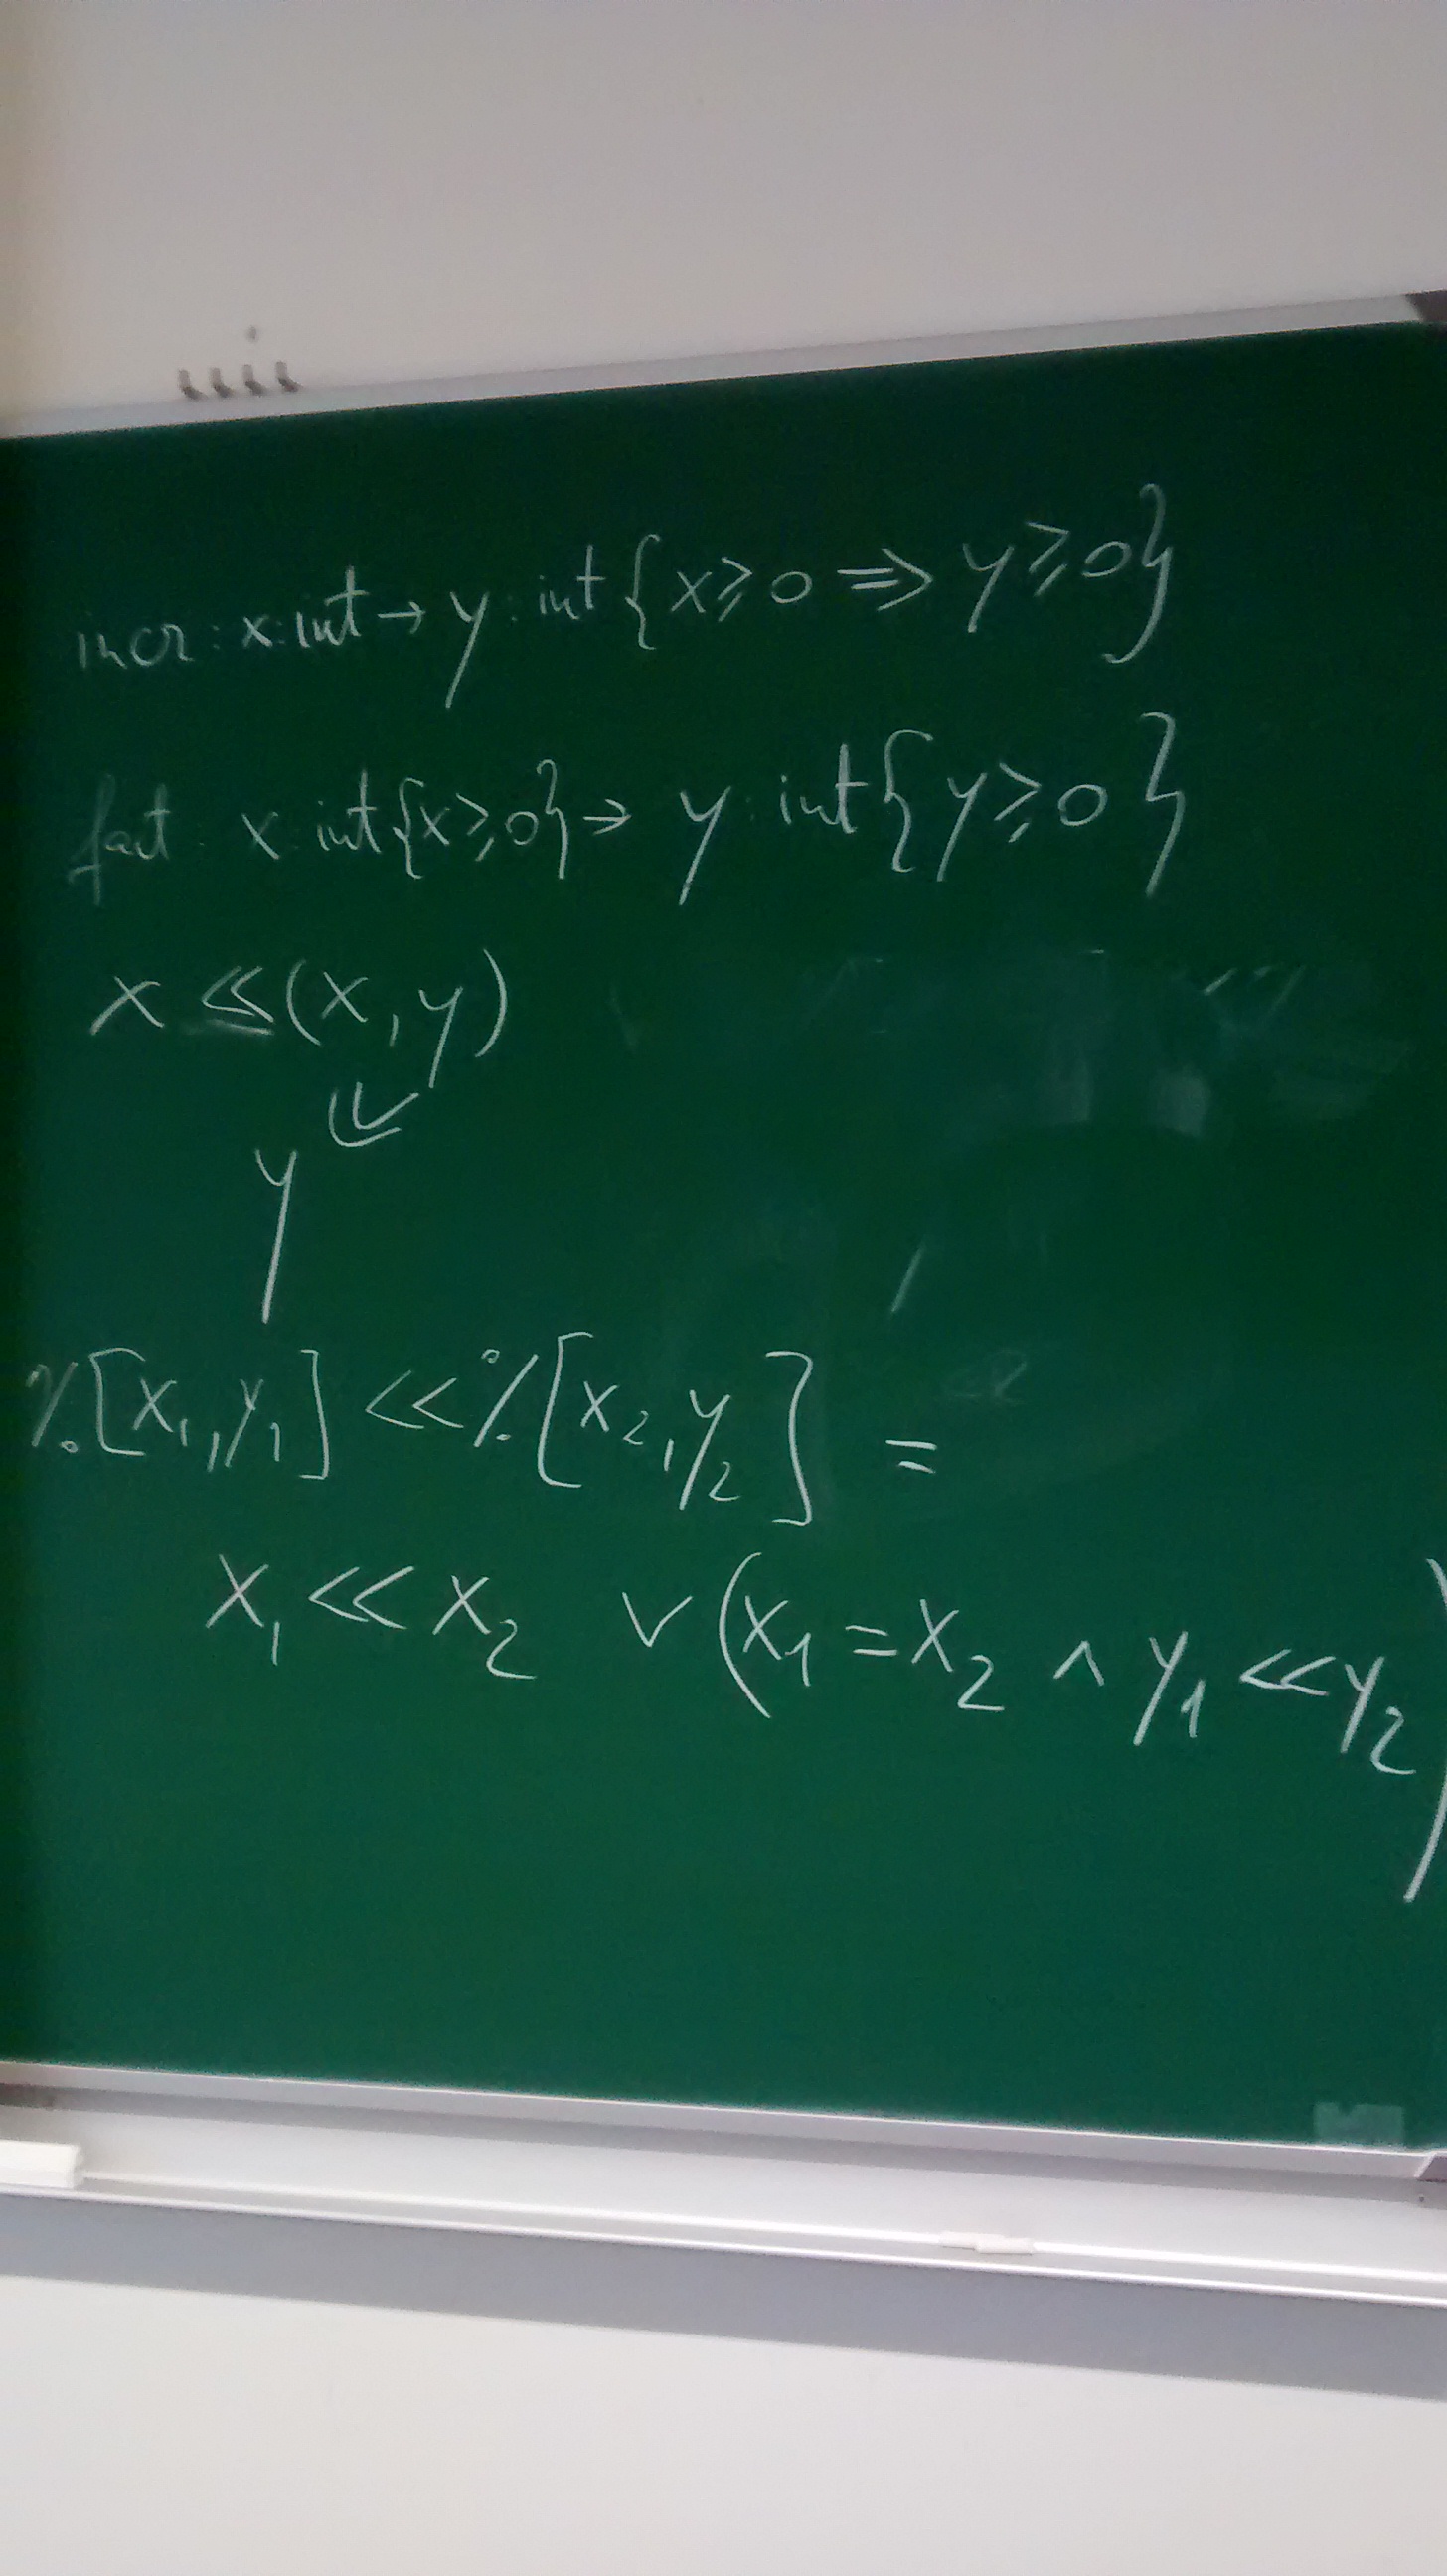 incr : x:int → y : int {x ≥ 0 ⇒ y ≥ 0}
fact : x : int{x ≥ 0} → y : int{y ≥ 0}
x ≪ (x, y)
y
%[x₁, y₁] << %[x₂, y₂] =
x₁ << x₂ ∨ (x₁ = x₂ ∧ y₁ << y₂)